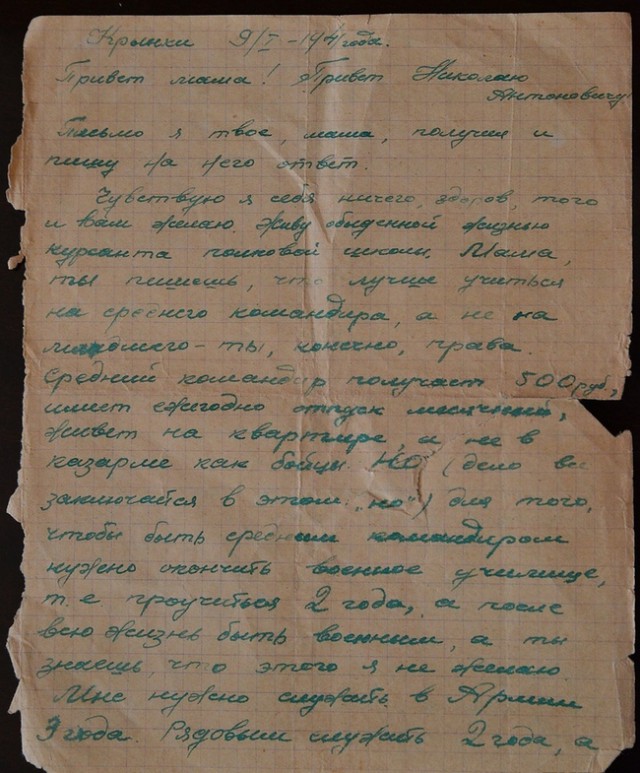 Крынки 9/I-1941 года.
Привет мама! Привет Николаю
Антоновичу!
Письмо я твое, мама, получил и
пишу на него ответ.
Чувствую я себя ничего, здоров, того
и вам желаю. Живу обыденной жизнью
курсанта полковой школы. Мама,
ты пишешь, что лучше учиться
на среднего командира, а не на
младшего - ты, конечно, права.
Средний командир получает 500 руб.,
имеет ежегодно отпуск месячный,
живет на квартире, а не в
казарме как бойцы. НО (дело все
заключайся в этом „но") для того,
чтобы быть средним командиром
нужно окончить военное училище,
т.е. проучиться 2 года, а после
всю жизнь быть военным, а ты
знаешь, что этого я не желаю.
Мне нужно служить в Армии
3 года. Рядовым служить 2 года, а